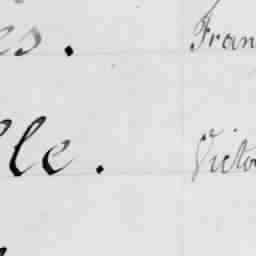 es. Fran
lle. Victo